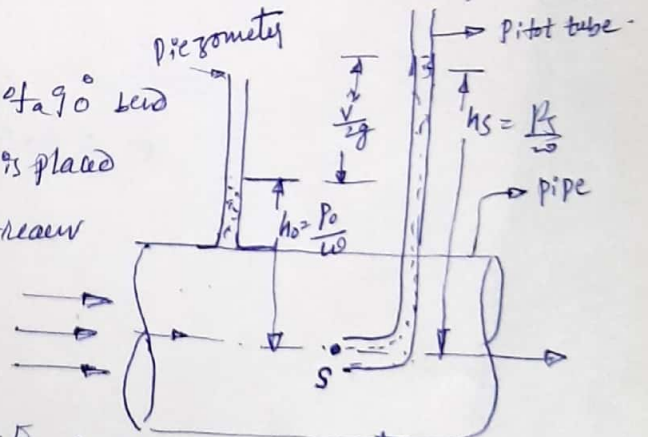 Piezometer
Pitot tube
of a 90° bend
is placed
V²/2g
hs = Ps/w
pipe
h₀ = P₀/w
S